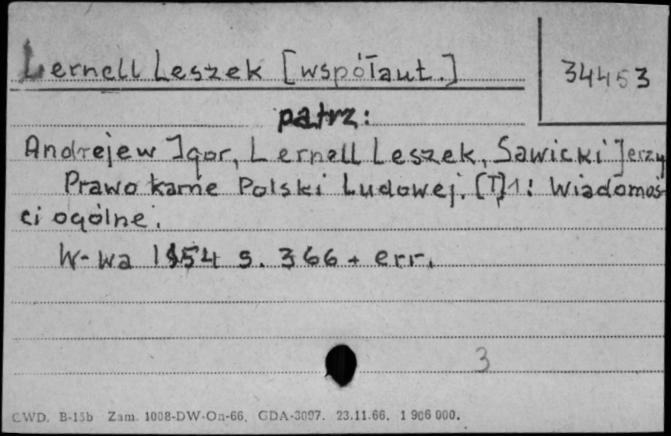 Lernell Leszek [współaut.]
34453
patrz:
Andrejew Igor, Lernell Leszek, Sawicki Jerzy
Prawo karne Polski Ludowej. [T]1: Wiadomoś-
ci ogólne.
W-wa 1954 s. 366 + err.
3
CWD. B-15b Zam. 1008-DW-On-66. GDA-3097. 23.11.66. 1 906 000.